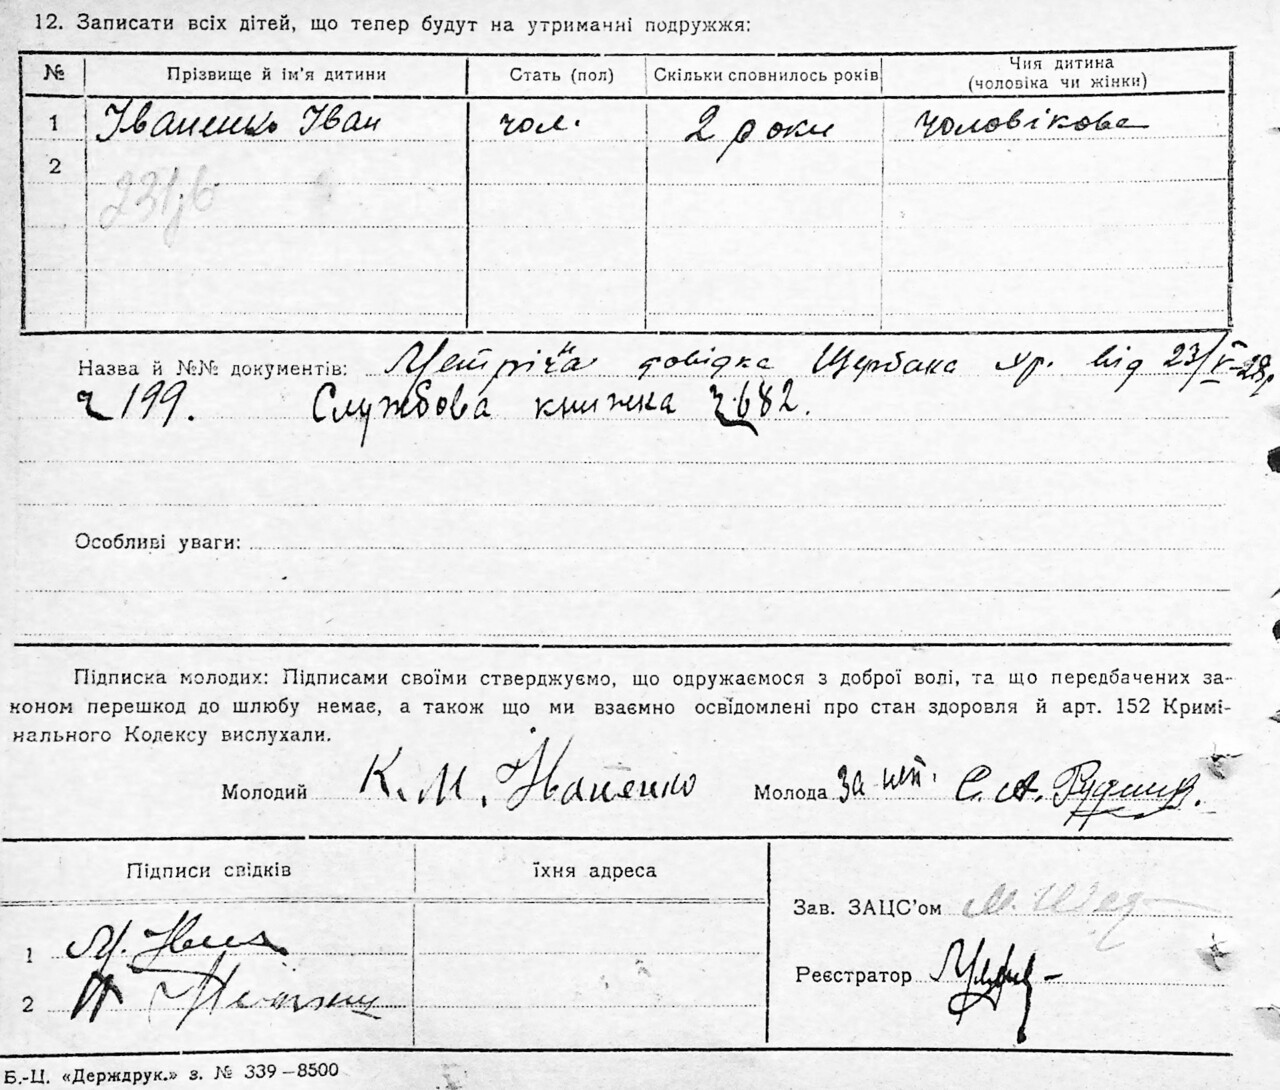 12. Записати всіх дітей, що тепер будут на утриманні подружжя:
№ Прізвище й ім'я дитини Стать (пол) Скільки сповнилось років Чия дитина
(чоловіка чи жінки)
1 Іваненко Іван чол. 2 роки чоловікова
2
231/6
Назва й №№ документів: Метрічна довідка Щербака Хр. від 23/V-28р
ч 199. Службова книжка ч 682.
Особливі уваги:
Підписка молодих: Підписами своїми стверджуємо, що одружаємося з доброї волі, та що передбачених за-
коном перешкод до шлюбу немає, а також що ми взаємно освідомлені про стан здоровля й арт. 152 Кримі-
нального Кодексу вислухали.
Молодий К. М. Іваненко Молода за неп. С. А.
Підписи свідків їхня адреса
Зав. ЗАЦС'ом М.
1 М.
Реєстратор
2
Б.-Ц. «Держдрук.» з. № 339–8500